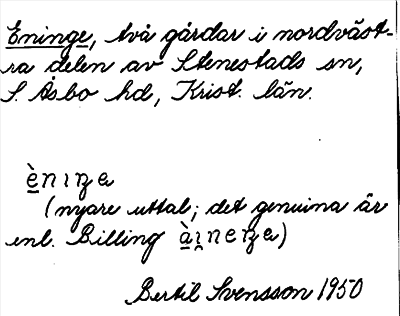 Eninge, två gårdar i nordväst-
ra delen av Stenestads sn,
S. Åsbo hd, Krist. län.
è̠nıŋe
(nyare uttal; det genuina är
enl. Billing à̠ı̯neŋe)
Bertil Svensson 1950